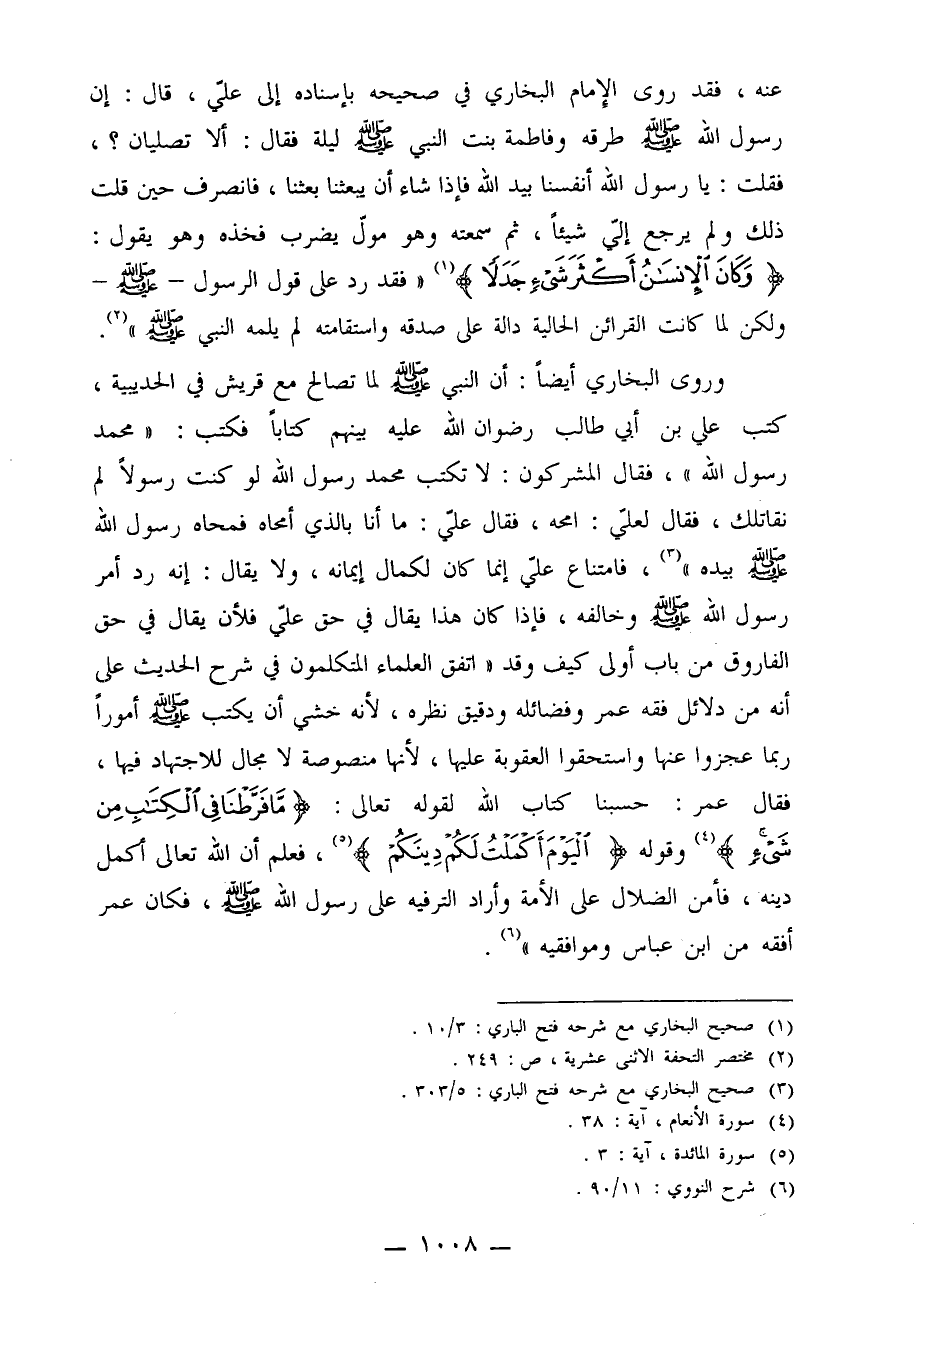 عنه ، فقد روى الإمام البخاري في صحيحه بإسناده إلى عليّ ، قال : إن
رسول الله ﷺ طرقه وفاطمة بنت النبي ﷺ ليلة فقال : ألا تصليان ؟ ،
فقلت : يا رسول الله أنفسنا بيد الله فإذا شاء أن يبعثنا بعثنا ، فانصرف حين قلت
ذلك ولم يرجع إليّ شيئاً ، ثم سمعته وهو مولّ يضرب فخذه وهو يقول :
﴿ وَكَانَ ٱلْإِنسَـٰنُ أَكْثَرَ شَىْءٍ جَدَلًا ﴾(١) « فقد رد على قول الرسول – ﷺ –
ولكن لما كانت القرائن الحالية دالة على صدقه واستقامته لم يلمه النبي ﷺ »(٢).
وروى البخاري أيضاً : أن النبي ﷺ لما تصالح مع قريش في الحديبية ،
كتب علي بن أبي طالب رضوان الله عليه بينهم كتاباً فكتب : « محمد
رسول الله » ، فقال المشركون : لا تكتب محمد رسول الله لو كنت رسولاً لم
نقاتلك ، فقال لعليّ : امحه ، فقال عليّ : ما أنا بالذي أمحاه فمحاه رسول الله
ﷺ بيده »(٣) ، فامتناع عليّ إنما كان لكمال إيمانه ، ولا يقال : إنه رد أمر
رسول الله ﷺ وخالفه ، فإذا كان هذا يقال في حق عليّ فلأن يقال في حق
الفاروق من باب أولى كيف وقد « اتفق العلماء المتكلمون في شرح الحديث على
أنه من دلائل فقه عمر وفضائله ودقيق نظره ، لأنه خشي أن يكتب ﷺ أموراً
ربما عجزوا عنها واستحقوا العقوبة عليها ، لأنها منصوصة لا مجال للاجتهاد فيها ،
فقال عمر : حسبنا كتاب الله لقوله تعالى : ﴿ مَّا فَرَّطْنَا فِى ٱلْكِتَـٰبِ مِن
شَىْءٍۚ ﴾(٤) وقوله ﴿ ٱلْيَوْمَ أَكْمَلْتُ لَكُمْ دِينَكُمْ ﴾(٥) ، فعلم أن الله تعالى أكمل
دينه ، فأمن الضلال على الأمة وأراد الترفيه على رسول الله ﷺ ، فكان عمر
أفقه من ابن عباس وموافقيه »(٦) .
(١) صحيح البخاري مع شرحه فتح الباري : ١٠/٣ .
(٢) مختصر التحفة الاثنى عشرية ، ص : ٢٤٩ .
(٣) صحيح البخاري مع شرحه فتح الباري : ٣٠٣/٥ .
(٤) سورة الأنعام ، آية : ٣٨ .
(٥) سورة المائدة ، آية : ٣ .
(٦) شرح النووي : ٩٠/١١ .
— ١٠٠٨ —